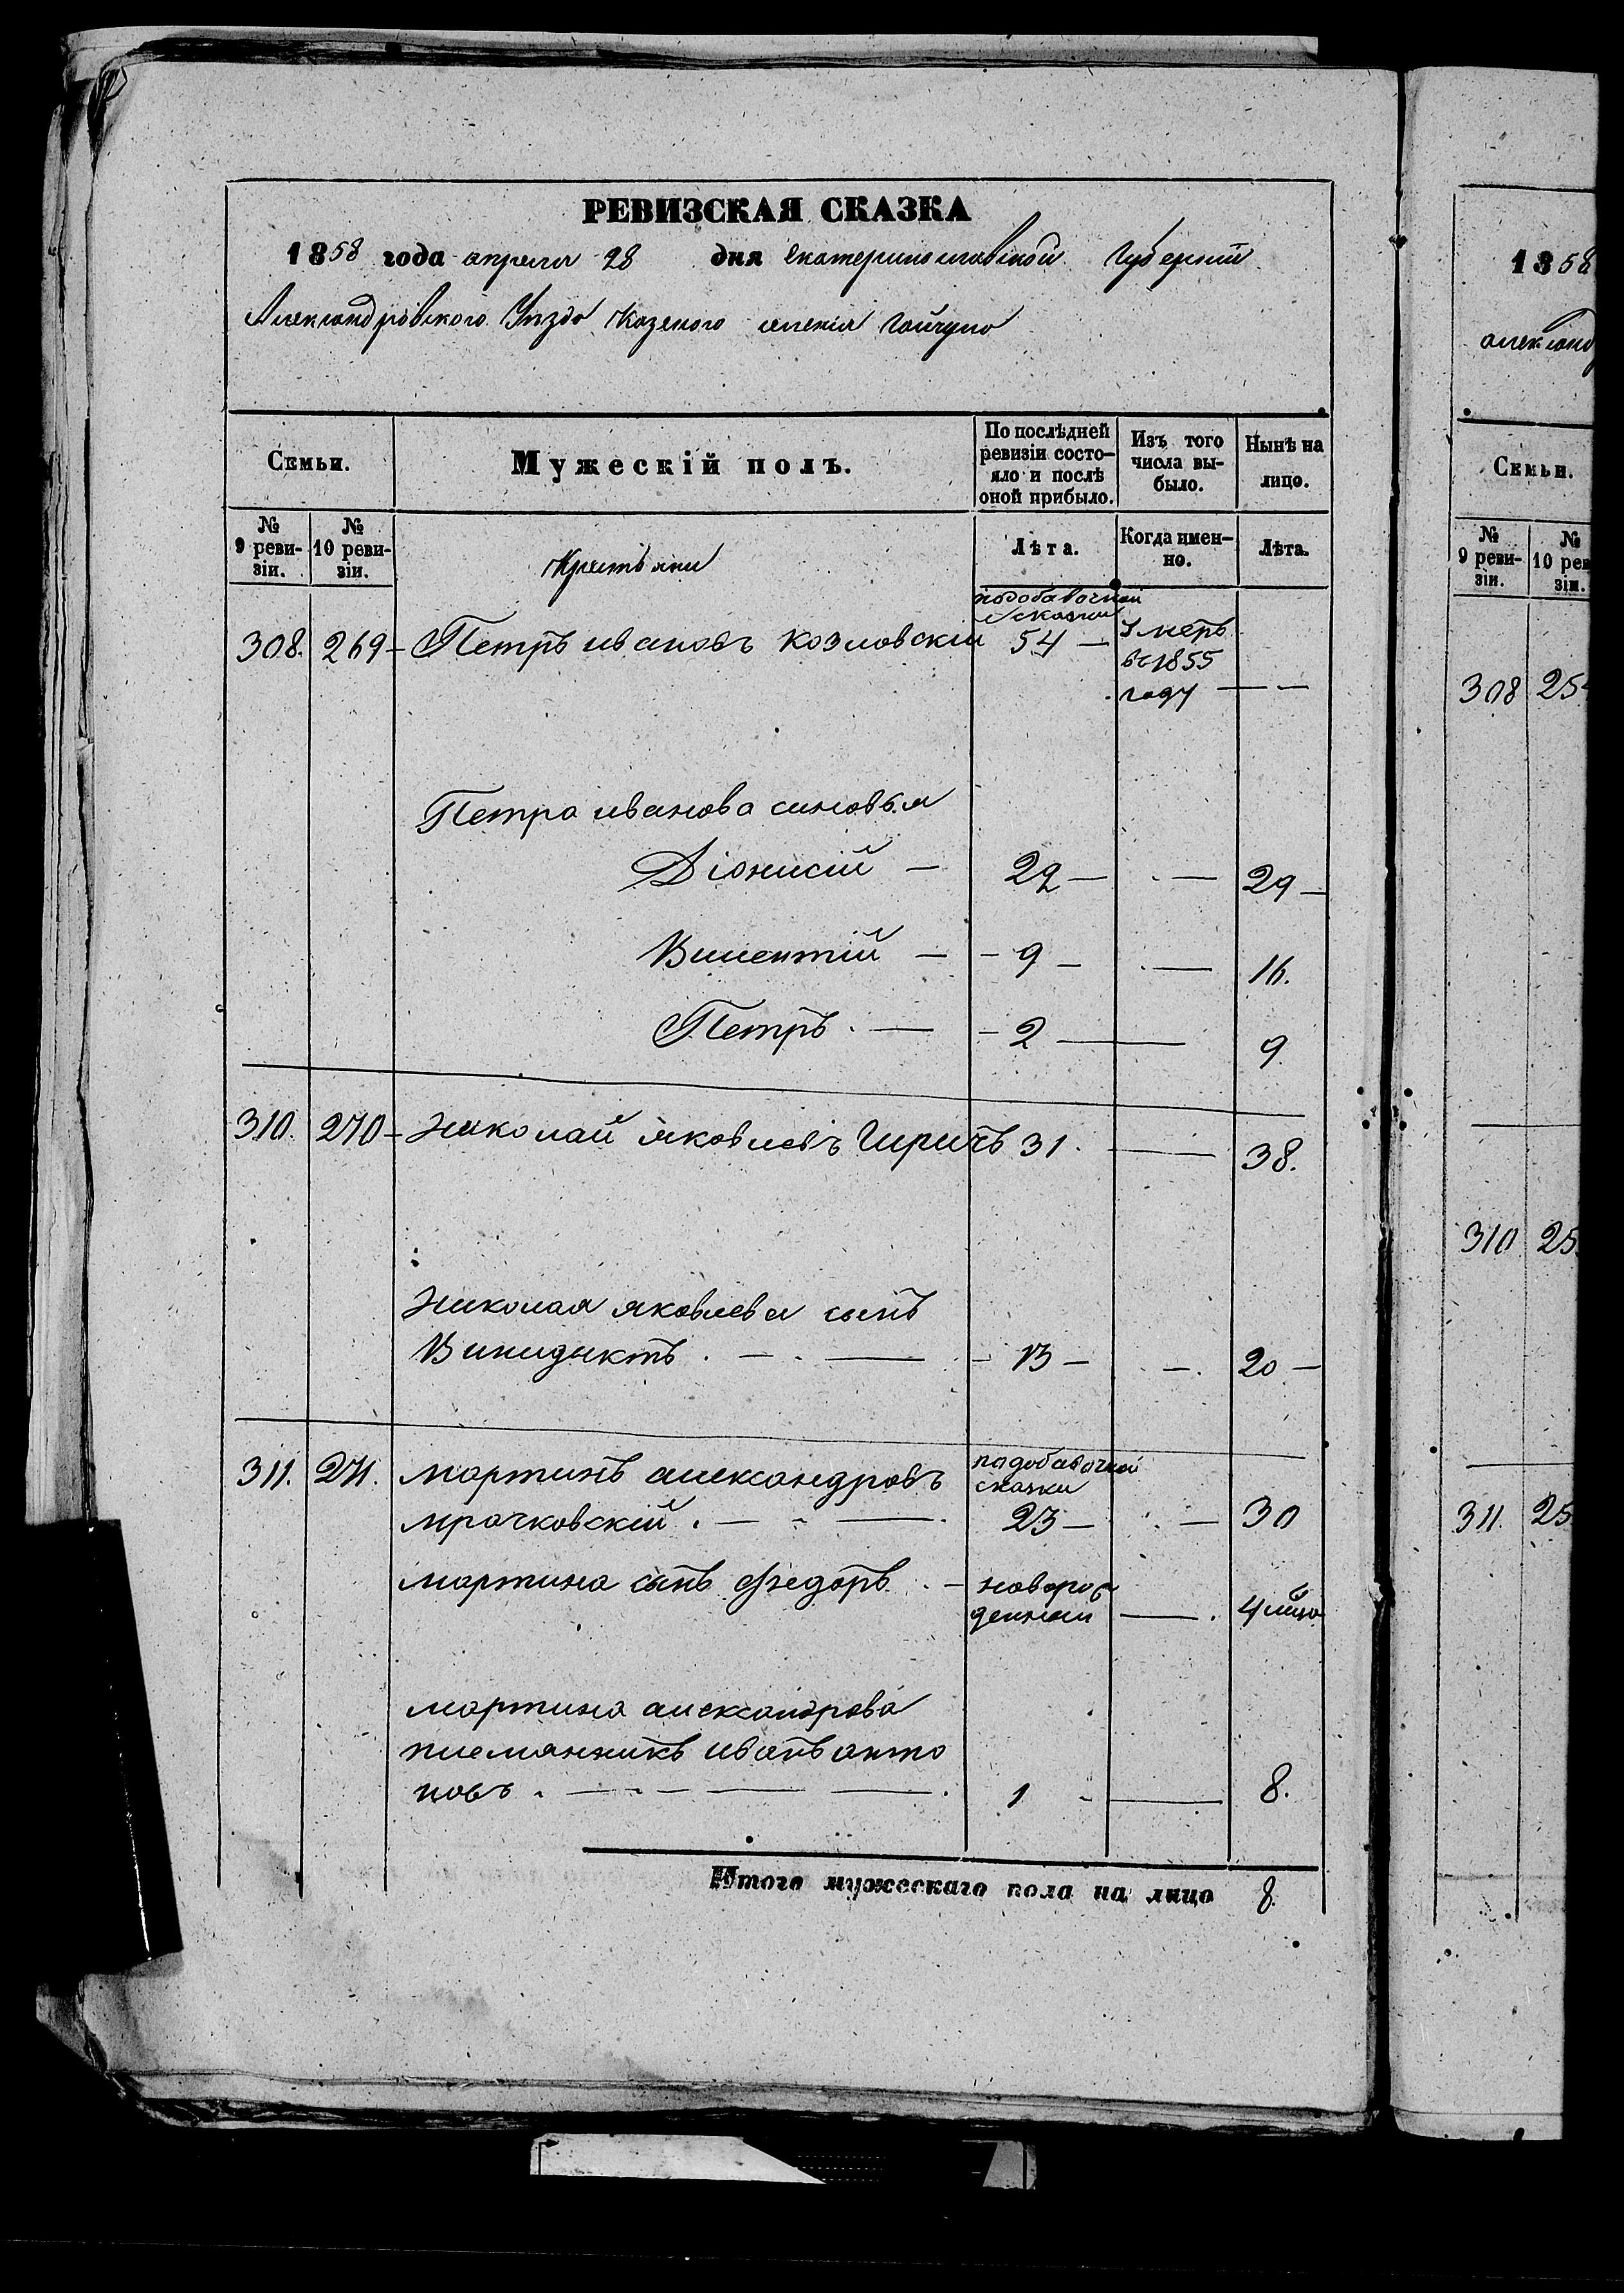 РЕВИЗСКАЯ СКАЗКА
1858 года апреля 28 дня Екатеринославской Губернии
Александровского Уезда Казеного селения Гайчуло
Семьи.
Мужескій полъ.
По послѣдней ревизіи состо-
яло и послѣ оной прибыло.
Изъ того числа вы-
было.
Нынѣ на лицо.
№ 9 реви-
зіи.
№ 10 реви-
зіи.
Крестьяни
Лѣта.
Когда имен-
но.
Лѣта.
подобавочной
сказки
308. 269 – Петръ ивановъ козловскій 54 – Умеръ
въ 1855
году — —
Петра иванова синовья
Діонисій — 22 — . — 29 —
Викентій — – 9 – . — 16.
Петръ . — – 2 — — 9
310. 270 – Николай яковлевъ Гиричъ 31 . — 38.
Николая яковлева сынъ
Винидиктъ . — . — – 13 – . – . 20 —
311. 271. мартинъ александровъ подобавочной
сказки
мрочковскій . — - — . 23 – . — 30
мартина сынъ Федоръ . – новорож
денний — . 4 меца
мартина александрова
племянникъ иванъ анто
новъ . — — — . 1 - — 8.
Итого мужескаго пола на лицо 8.
1858
александ
Семьи.
№ 9 реви-
зіи.
№ 10 рев
зіи.
308 25
310 25
311. 25